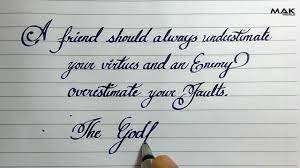 MAK
A friend should always underestimate
your virtues and an Enemy
overestimate your Faults.
The Godf